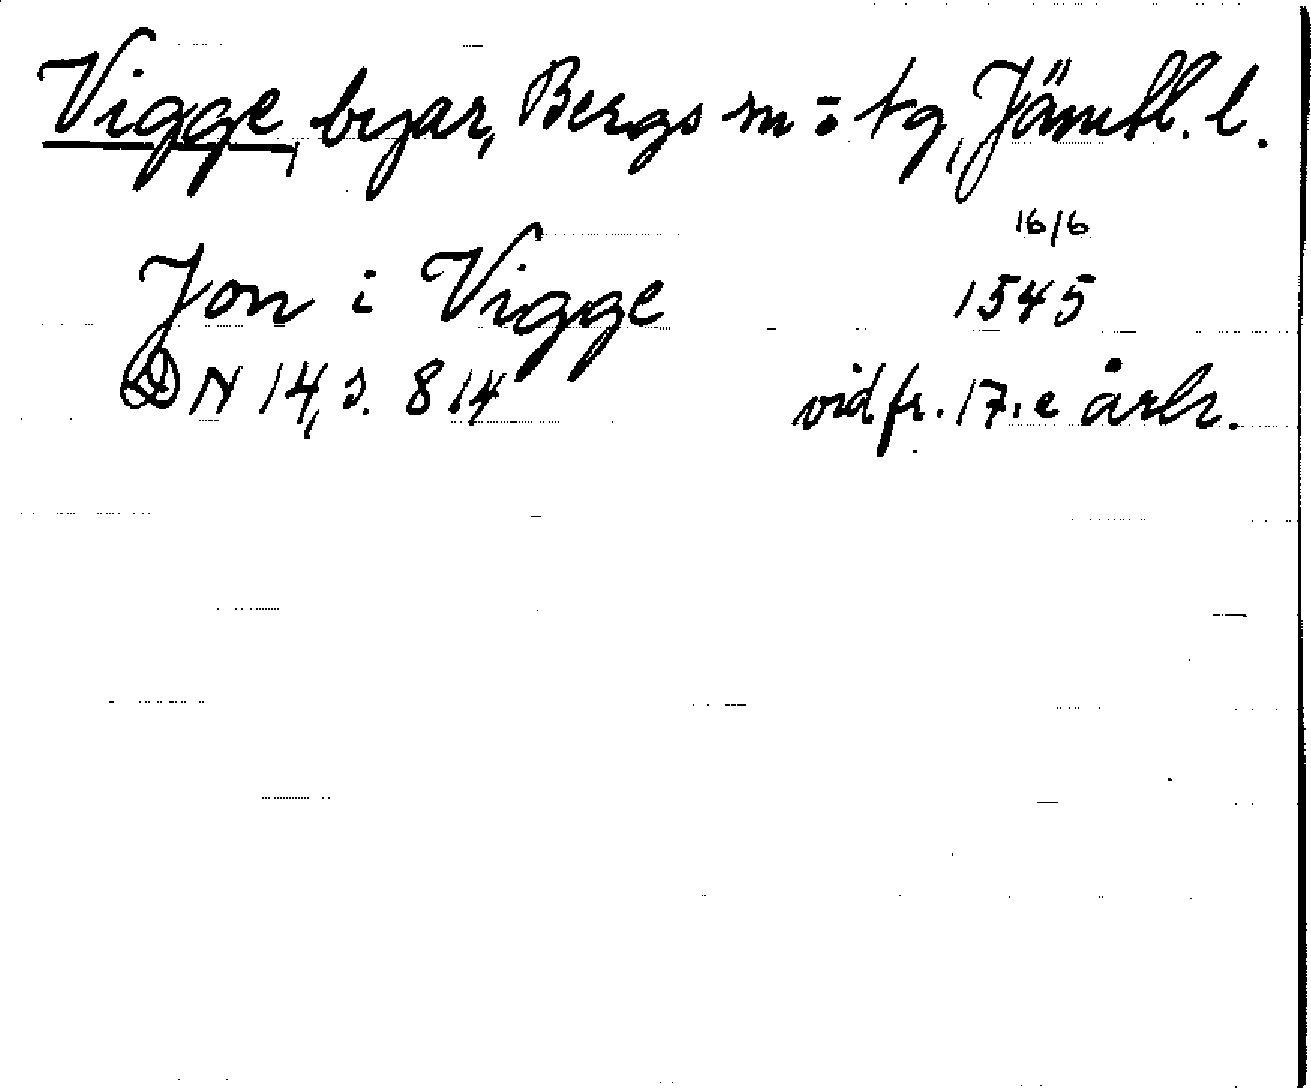 Vigge, byar, Bergs sn o tg, Jämtl. l.
16/6
Jon i Vigge 1545
DN 14, s. 814 vid fr. 17. e årh.